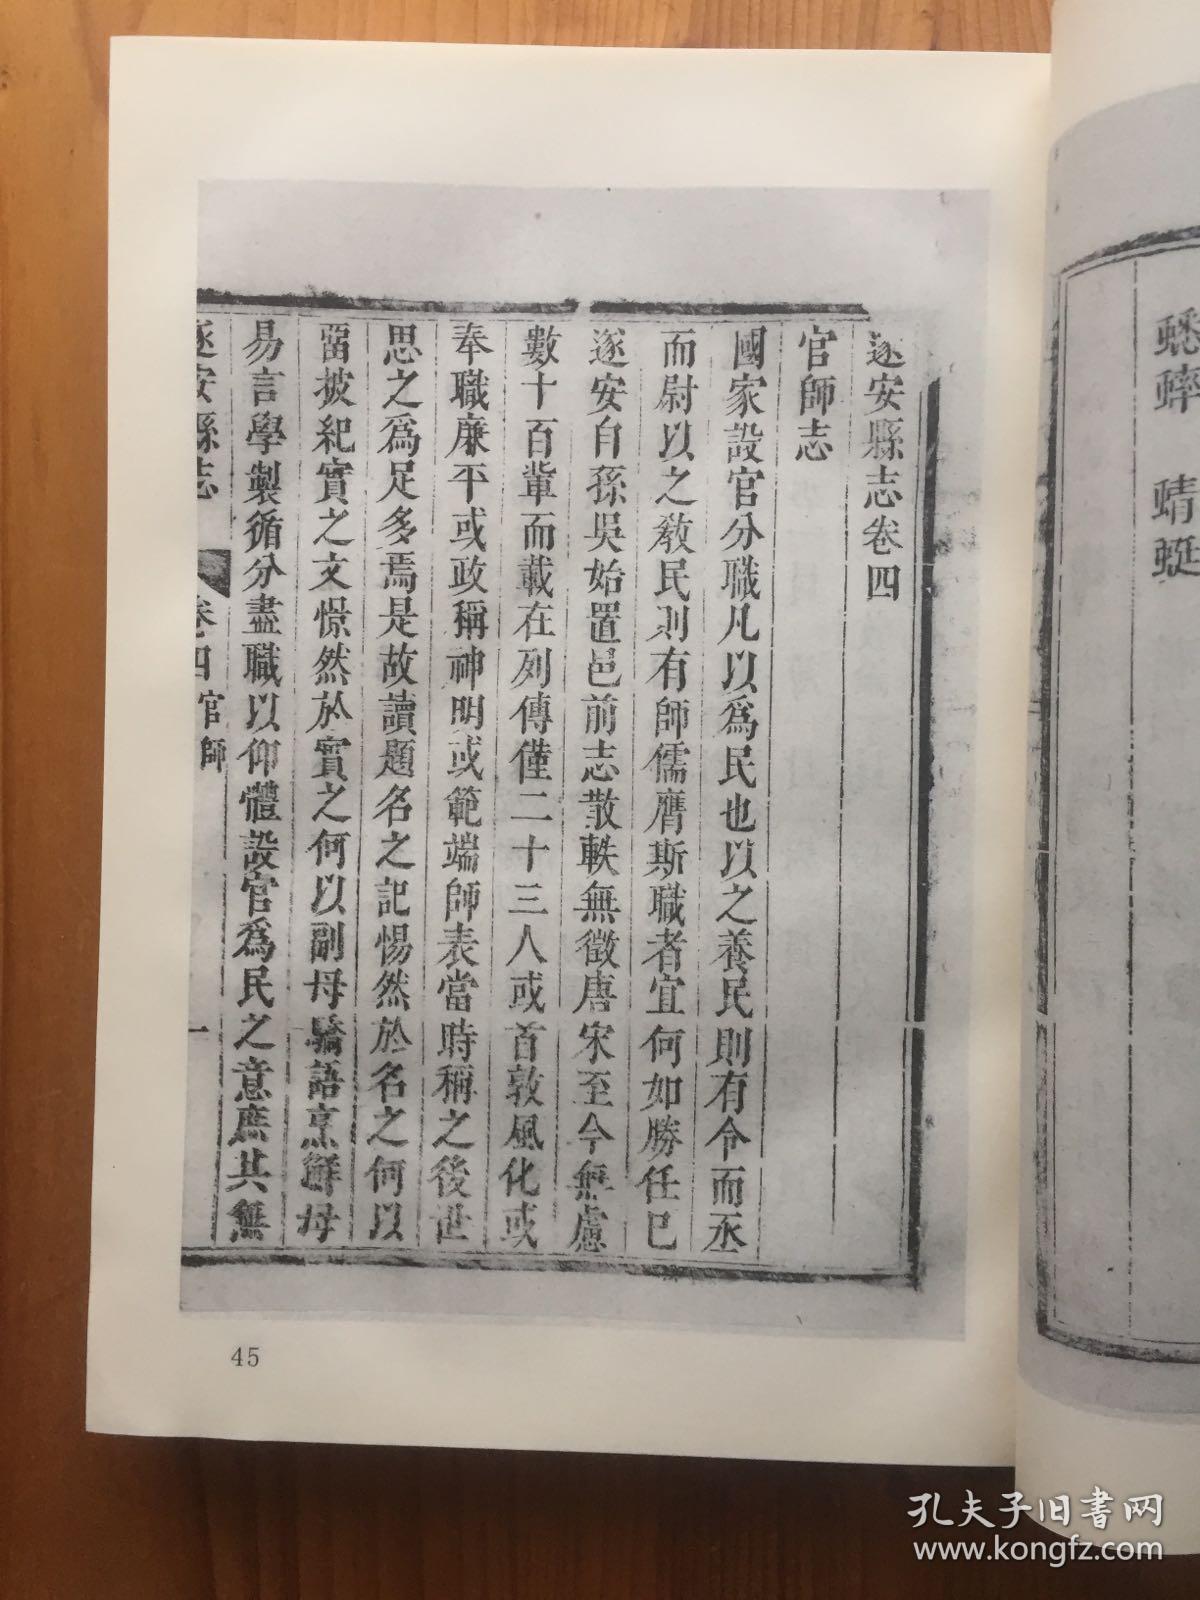 蟋蟀　蜻蜓
遂安縣志卷四
官師志
國家設官分職凡以爲民也以之養民則有令而丞
而尉以之教民則有師儒膺斯職者宜何如勝任巳
遂安自孫吳始置邑前志散軼無徵唐宋至今無慮
數十百輩而載在列傳僅二十三人或首敦風化或
奉職廉平或政稱神明或範端師表當時稱之後世
思之爲足多焉是故讀題名之記惕然於名之何以
留披紀實之文憬然於實之何以副毋驕語烹鮮毋
易言學製循分盡職以仰體設官爲民之意庶其無
遂安縣志 卷四官師 一
45
孔夫子旧书网
www.kongfz.com